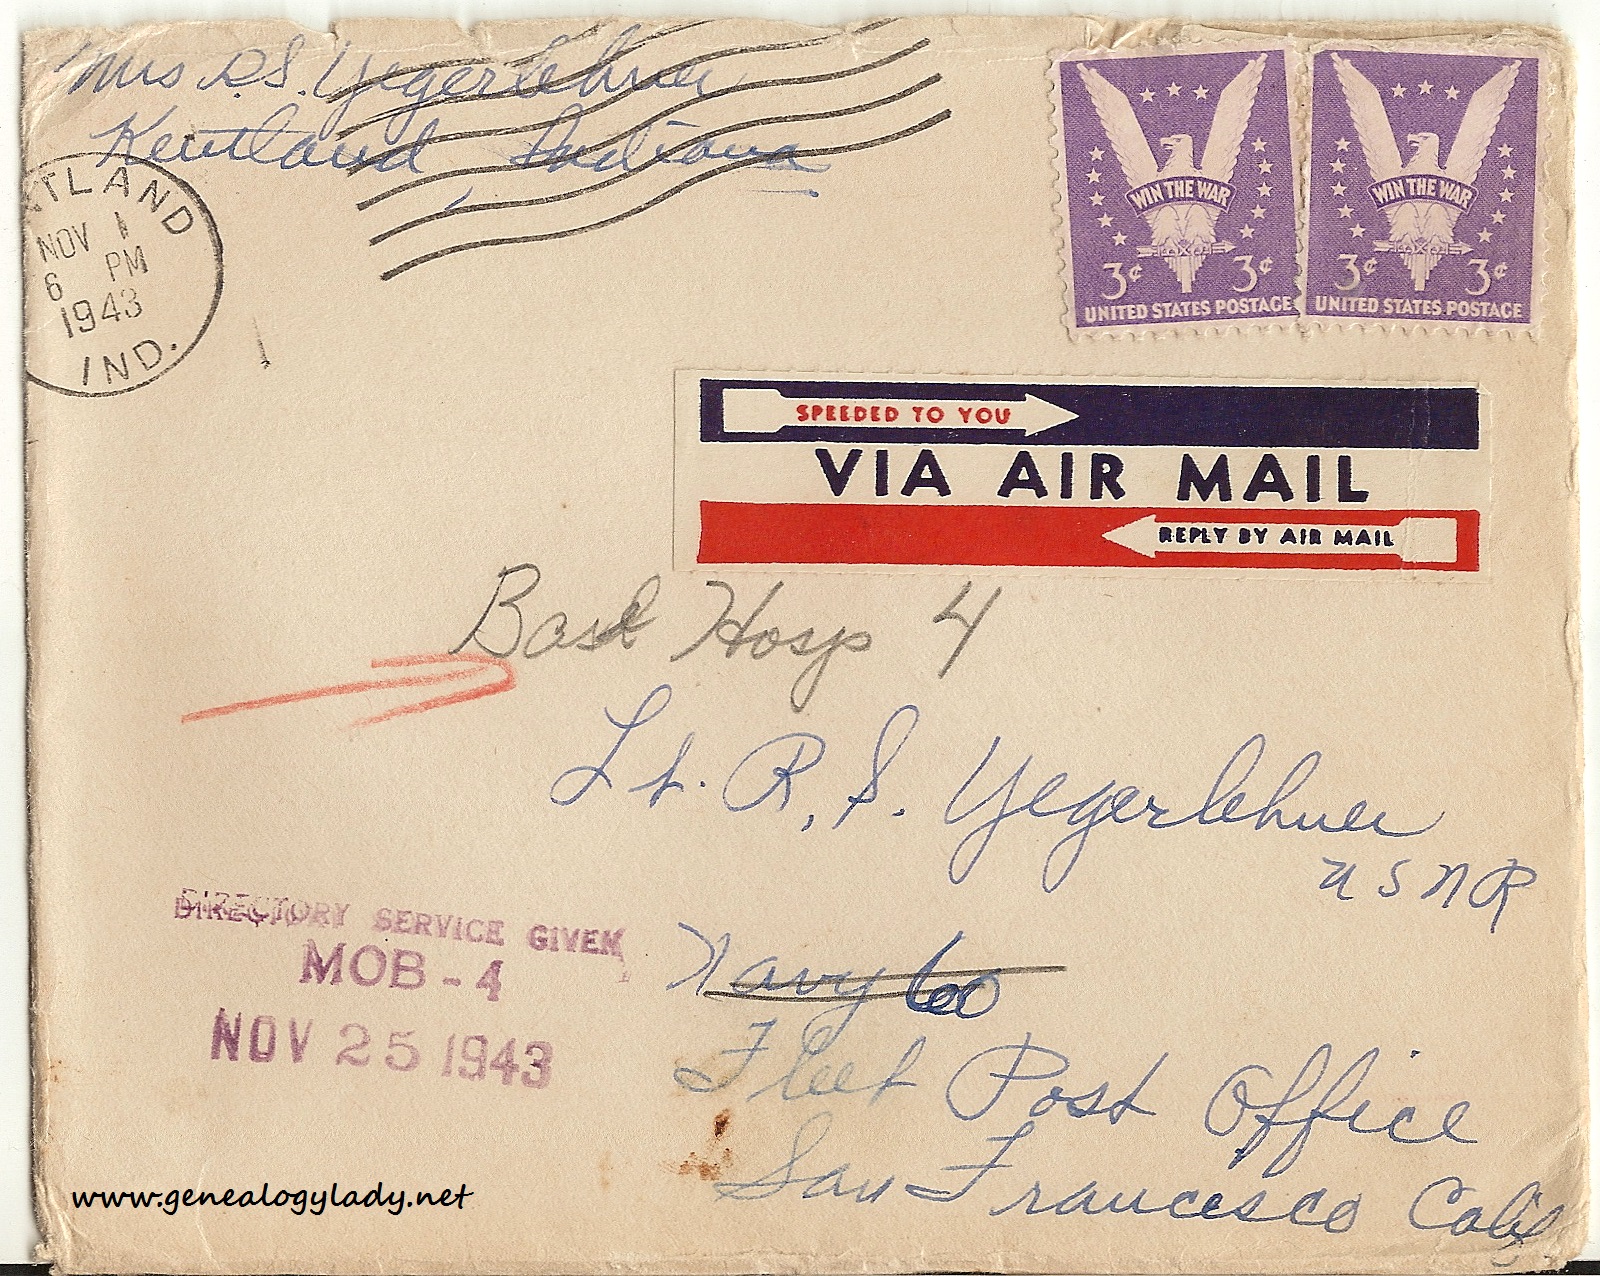 Mrs D.S. Yegerlehner
Kentland, Indiana
NTLAND
NOV 1
6 PM
1943
IND.
WIN THE WAR
3¢ 3¢
UNITED STATES POSTAGE
WIN THE WAR
3¢ 3¢
UNITED STATES POSTAGE
SPEEDED TO YOU
VIA AIR MAIL
REPLY BY AIR MAIL
Base Hosp 4
Lt. R.S. Yegerlehner
USNR
DIRECTORY SERVICE GIVEN
MOB-4
NOV 25 1943
Navy 60
Fleet Post Office
San Francisco Calif
www.genealogylady.net